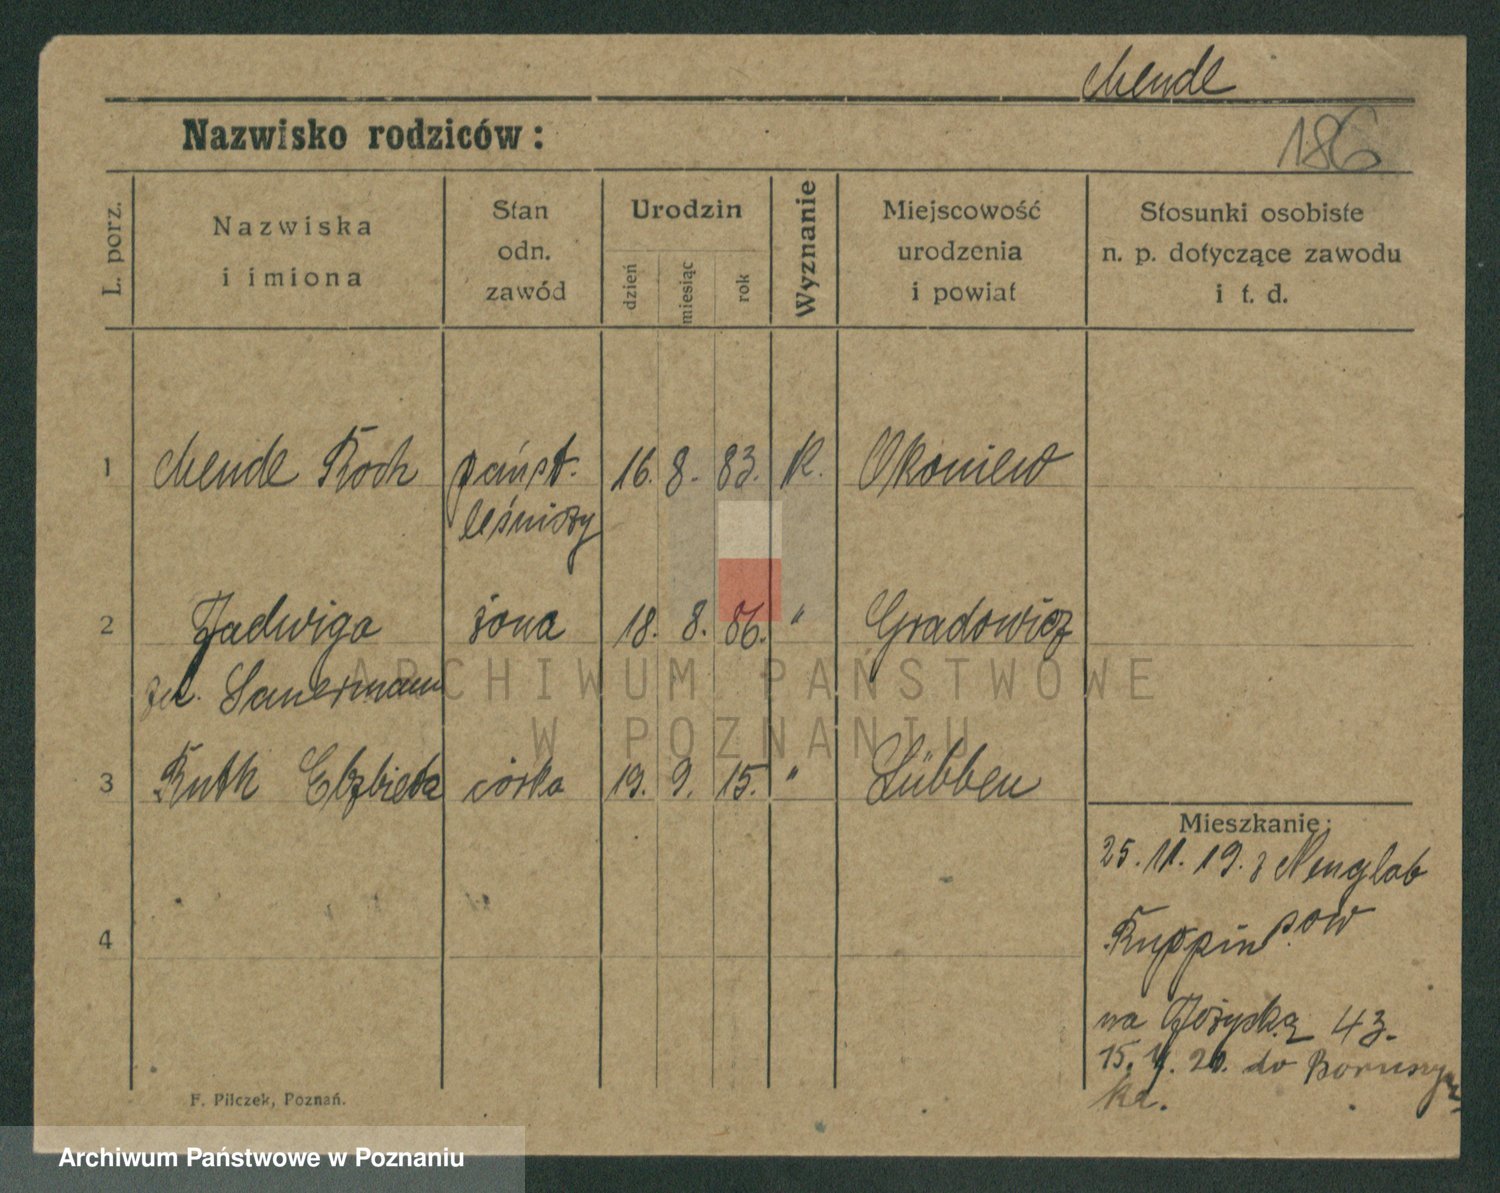 Mende
Nazwisko rodziców:
186
L. porz.
Nazwiska
i imiona
Stan
odn.
zawód
Urodzin
dzień
miesiąc
rok
Wyznanie
Miejscowość
urodzenia
i powiat
Stosunki osobiste
n. p. dotyczące zawodu
i t. d.
1 Mende Roch państ. 16. 8. 83. K. Okoniew
leśniczy
2 Jadwiga żona 18. 8. 86. " Gradowicz
ARCHIWUM PAŃSTWOWE
W POZNANIU
3 Ruth Elzbieta córka 19. 9. 15. " Lübben
Mieszkanie:
25. 11. 19. z
Ruppin
4
na 43.
15. 20. do Boruszyn
ka.
F. Pilczek, Poznań.
Archiwum Państwowe w Poznaniu